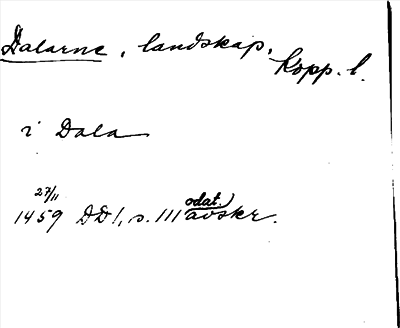 Dalarne, landskap, Kopp. l.
i Dala
27/11
1459 DD 1, s. 111 odat. avskr.